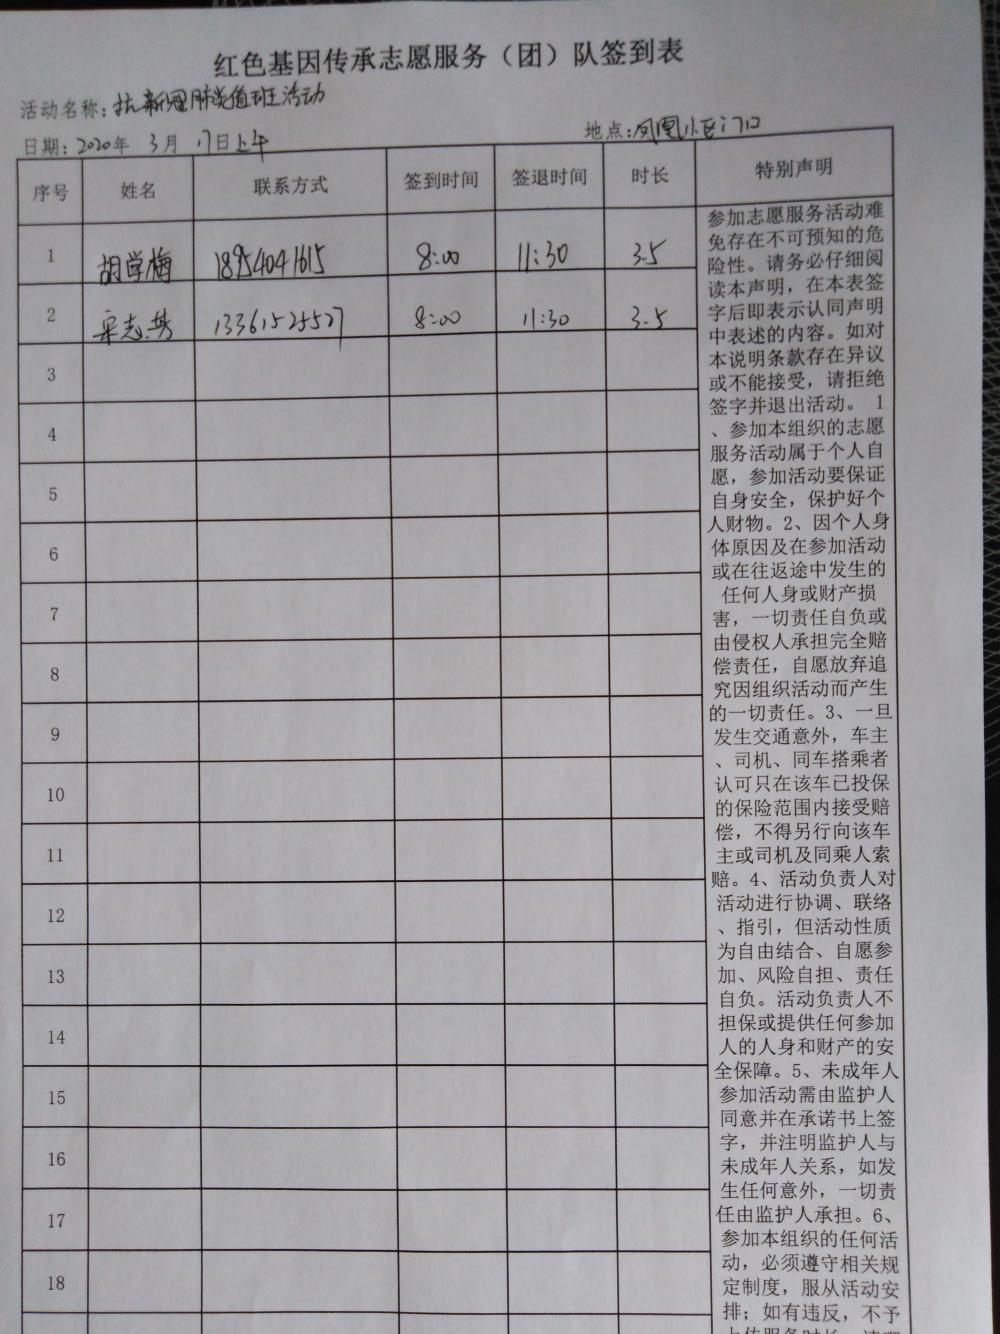 红色基因传承志愿服务（团）队签到表
活动名称：抗新冠肺炎值班活动
日期：2020年 3月 17日上午
地点：凤凰小区门口
序号 姓名 联系方式 签到时间 签退时间 时长 特别声明
1 胡学梅 18954041615 8:00 11:30 3.5
2 宋志芬 13361525527 8:00 11:30 3.5
3
4
5
6
7
8
9
10
11
12
13
14
15
16
17
18
参加志愿服务活动难
免存在不可预知的危
险性。请务必仔细阅
读本声明，在本表签
字后即表示认同声明
中表述的内容。如对
本说明条款存在异议
或不能接受，请拒绝
签字并退出活动。 1
、参加本组织的志愿
服务活动属于个人自
愿，参加活动要保证
自身安全，保护好个
人财物。2、因个人身
体原因及在参加活动
或在往返途中发生的
任何人身或财产损
害，一切责任自负或
由侵权人承担完全赔
偿责任，自愿放弃追
究因组织活动而产生
的一切责任。3、一旦
发生交通意外，车主
、司机、同车搭乘者
认可只在该车已投保
的保险范围内接受赔
偿，不得另行向该车
主或司机及同乘人索
赔。4、活动负责人对
活动进行协调、联络
、指引，但活动性质
为自由结合、自愿参
加、风险自担、责任
自负。活动负责人不
担保或提供任何参加
人的人身和财产的安
全保障。5、未成年人
参加活动需由监护人
同意并在承诺书上签
字，并注明监护人与
未成年人关系，如发
生任何意外，一切责
任由监护人承担。6、
参加本组织的任何活
动，必须遵守相关规
定制度，服从活动安
排；如有违反，不予
上传服务时长。请理